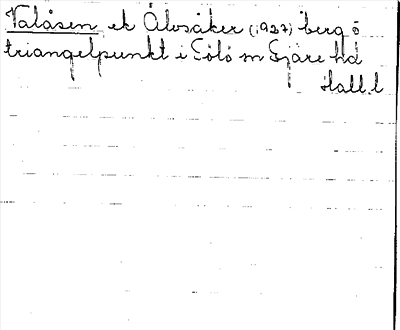 Valåsen ek Älvsåker (1927) berg o
triangelpunkt i Sölö sn Fjäre hd
Hall. l